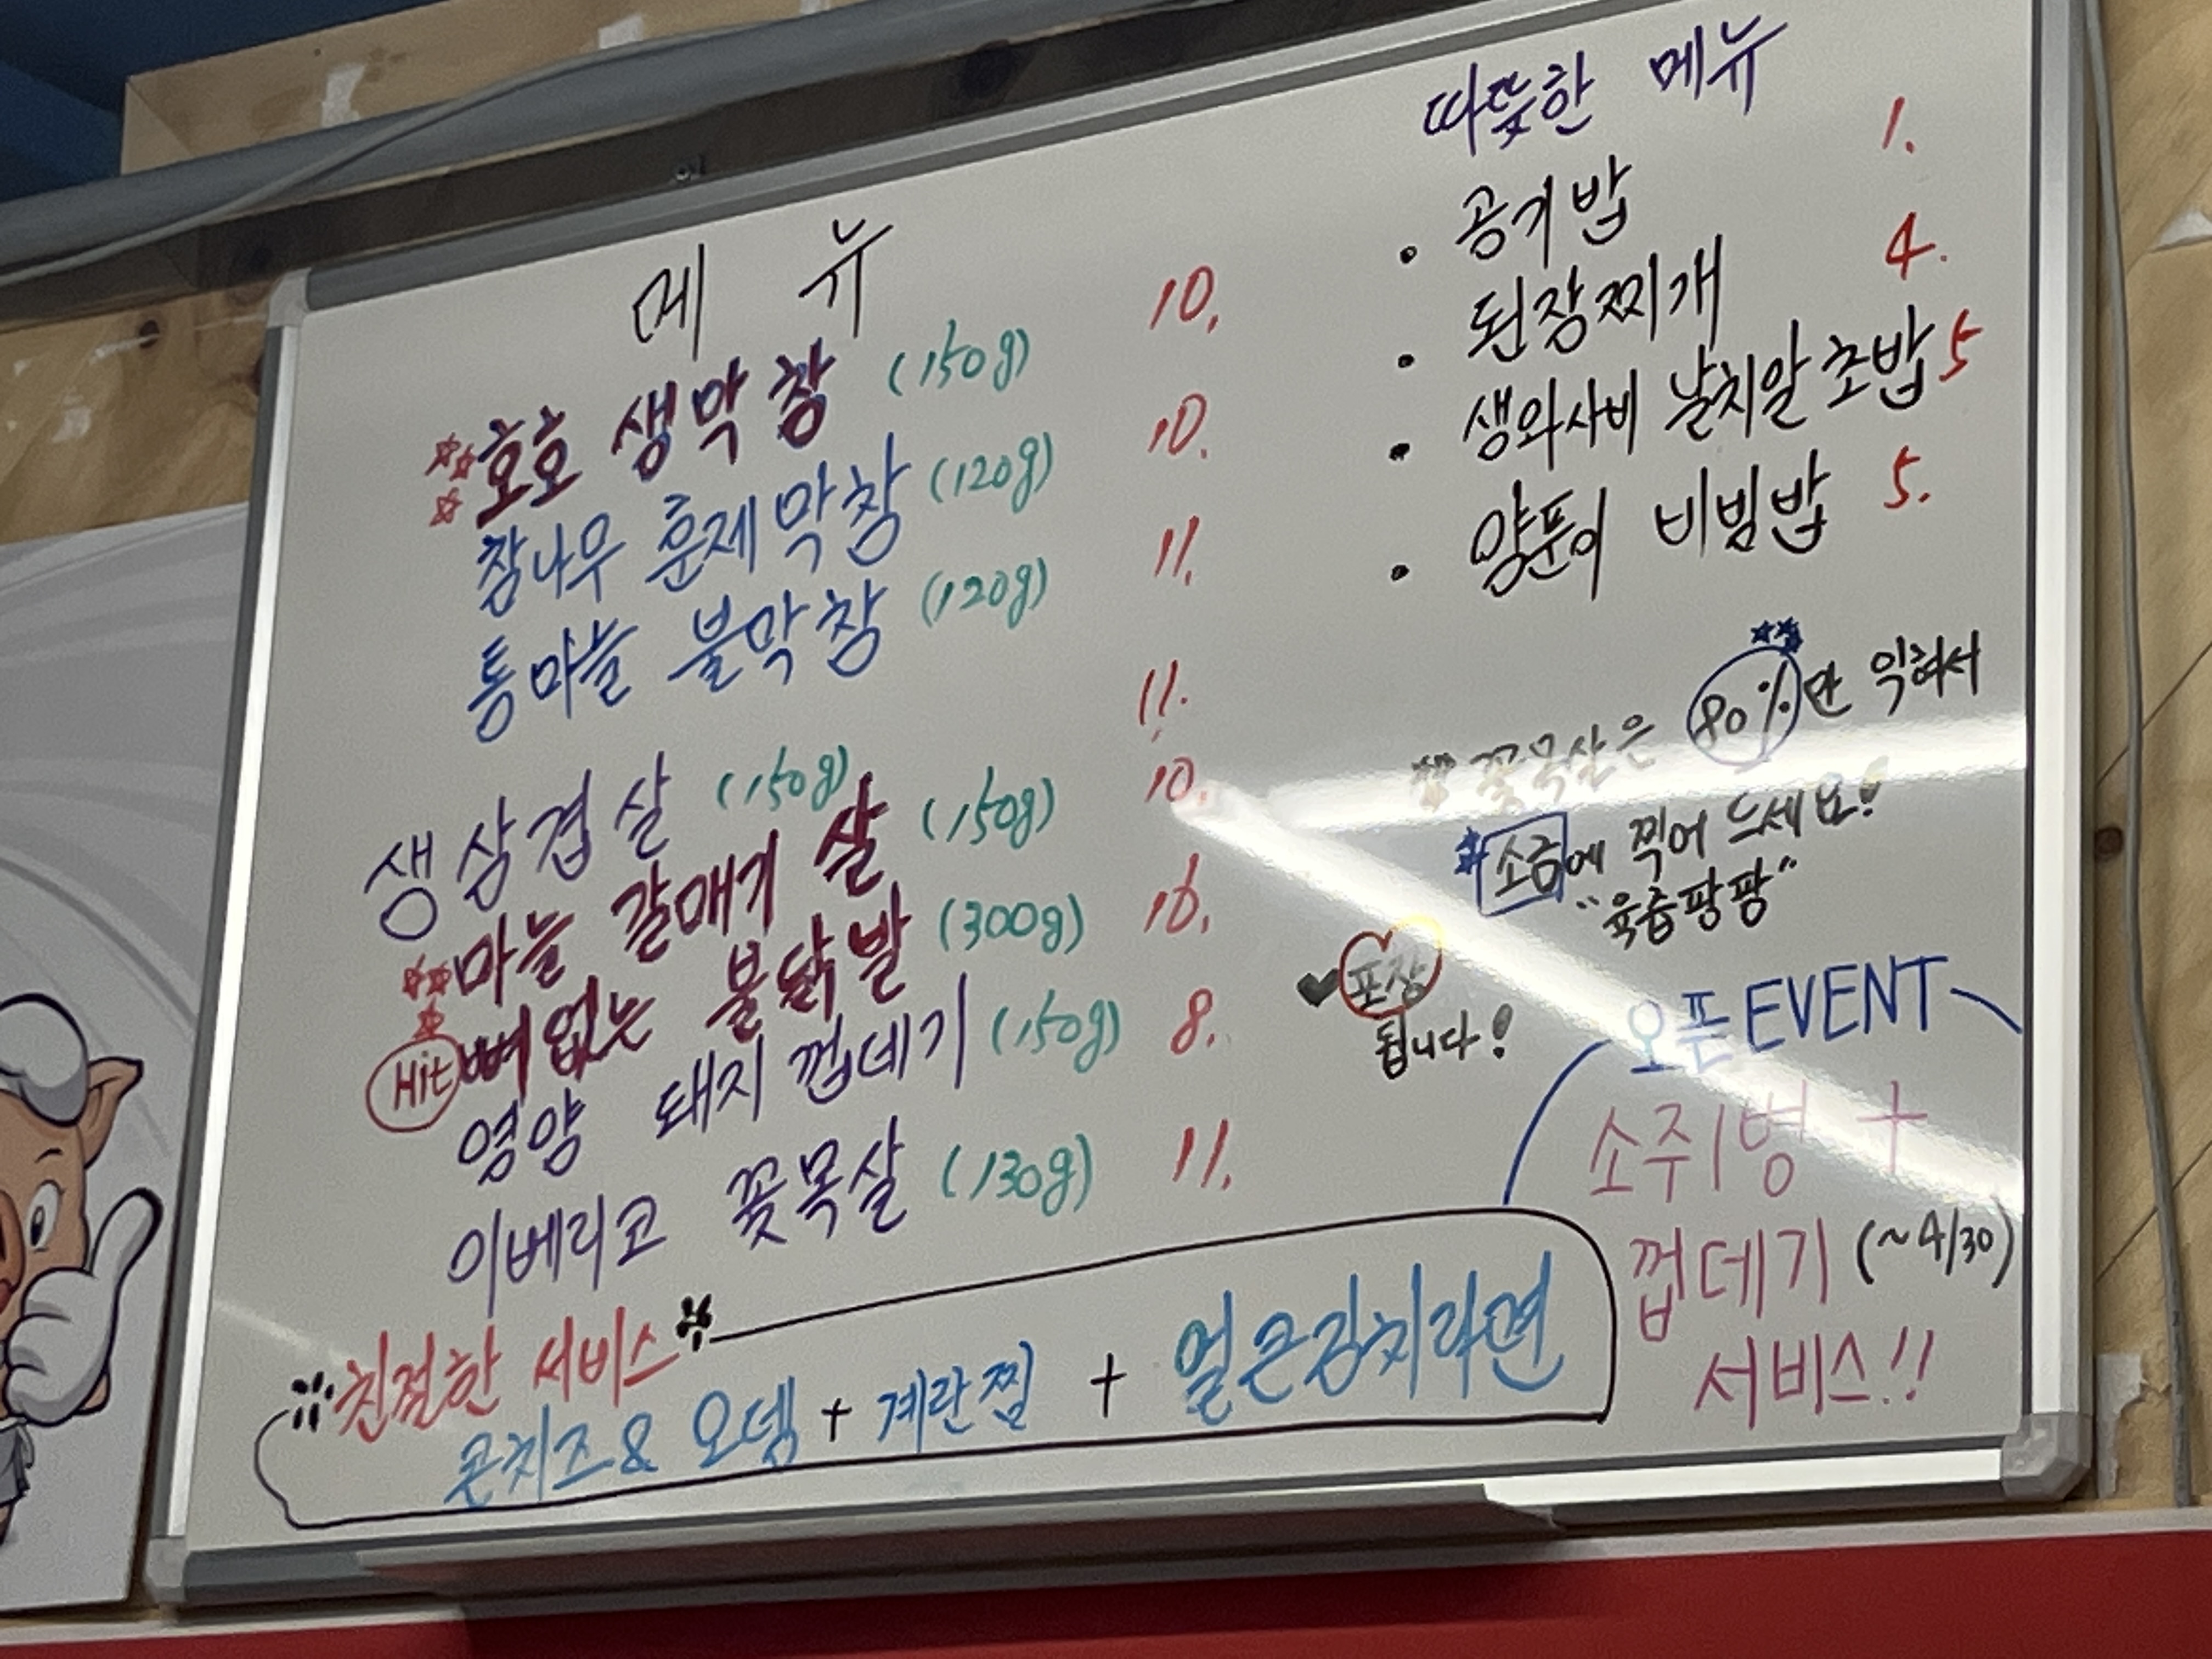 메뉴
호호 생막창 (150g) 10.
참나무 훈제막창 (120g) 10.
통마늘 불막창 (120g) 11.
생삼겹살 (150g) 11.
마늘 갈매기 살 (150g) 10.
Hit 뼈없는 불닭발 (300g) 16.
영양 돼지 껍데기 (150g) 8.
이베리코 꽃목살 (130g) 11.
친절한 서비스
콘치즈 & 오뎅 + 계란찜 + 얼큰김치라면
따뜻한 메뉴
· 공기밥 1.
· 된장찌개 4.
· 생와사비 날치알 초밥 5
· 양푼이 비빔밥 5.
꽃목살은 80%만 익혀서
소금에 찍어 드세요!
"육즙팡팡"
♥포장
됩니다!
오픈 EVENT
소주1병 +
껍데기 (~4/30)
서비스!!